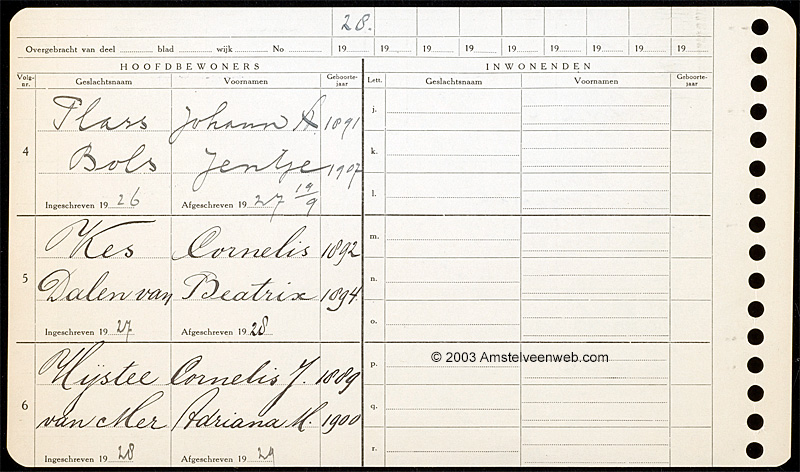 28.
Overgebracht van deel blad wijk No 19 19 19 19 19 19 19 19 19
HOOFDBEWONERS INWONENDEN
Volg-nr. Geslachtsnaam Voornamen Geboorte-jaar Lett. Geslachtsnaam Voornamen Geboorte-jaar
Plars Johann A. 1891 j.
4
Bols Jentje 1907 k.
Ingeschreven 1926 Afgeschreven 1927 19/9 l.
Kes Cornelis 1892 m.
5
Dalen van Beatrix 1894 n.
Ingeschreven 1927 Afgeschreven 1928 o.
© 2003 Amstelveenweb.com
Wijstee Cornelis J. 1889 p.
6
van Mer Adriana M. 1900 q.
Ingeschreven 1928 Afgeschreven 1929 r.